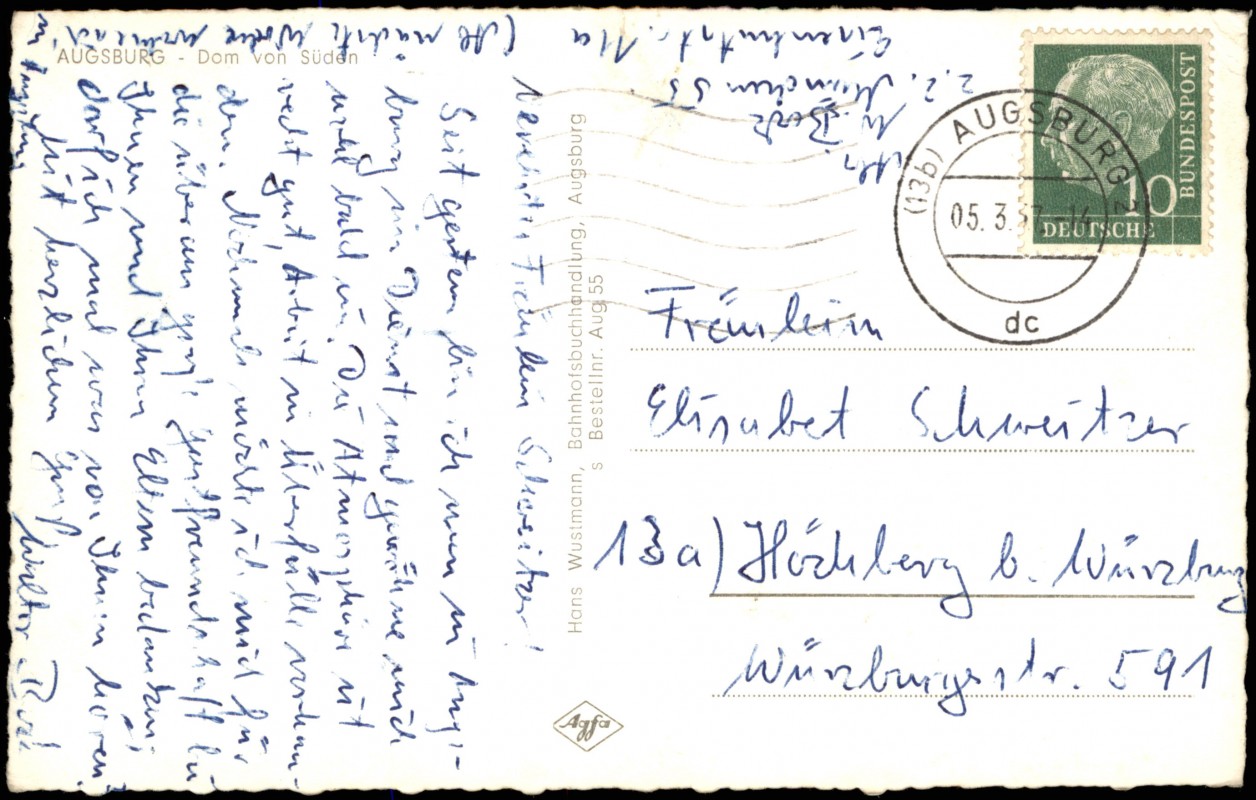 AUGSBURG - Dom von Süden
Verehrtes Fräulein Schweitzer!
Seit gestern bin ich nun in Augs-
burg im Dienst und gewöhne mich
wohl bald ein. Die Atmosphäre ist
recht gut, Arbeit in Überfülle vorhan-
den. Nochmals möchte ich mich für
die überaus große Gastfreundschaft bei
Ihnen und Ihren Eltern bedanken.
Darf ich mal was von Ihnen hören?
Mit herzlichem Gruß Walter
(Ab nächste Woche
in Augsburg
Abs.
W.
z.Z. München 55
11a
Hans Wustmann, Bahnhofsbuchhandlung, Augsburg
s Bestellnr. Aug 55
Agfa
(13b) AUGSBURG 2
05. 3. 57.-14
dc
DEUTSCHE
BUNDESPOST
10
Fräulein
Elisabet Schweitzer
13a) Höchberg b. Würzburg
Würzburgerstr. 591